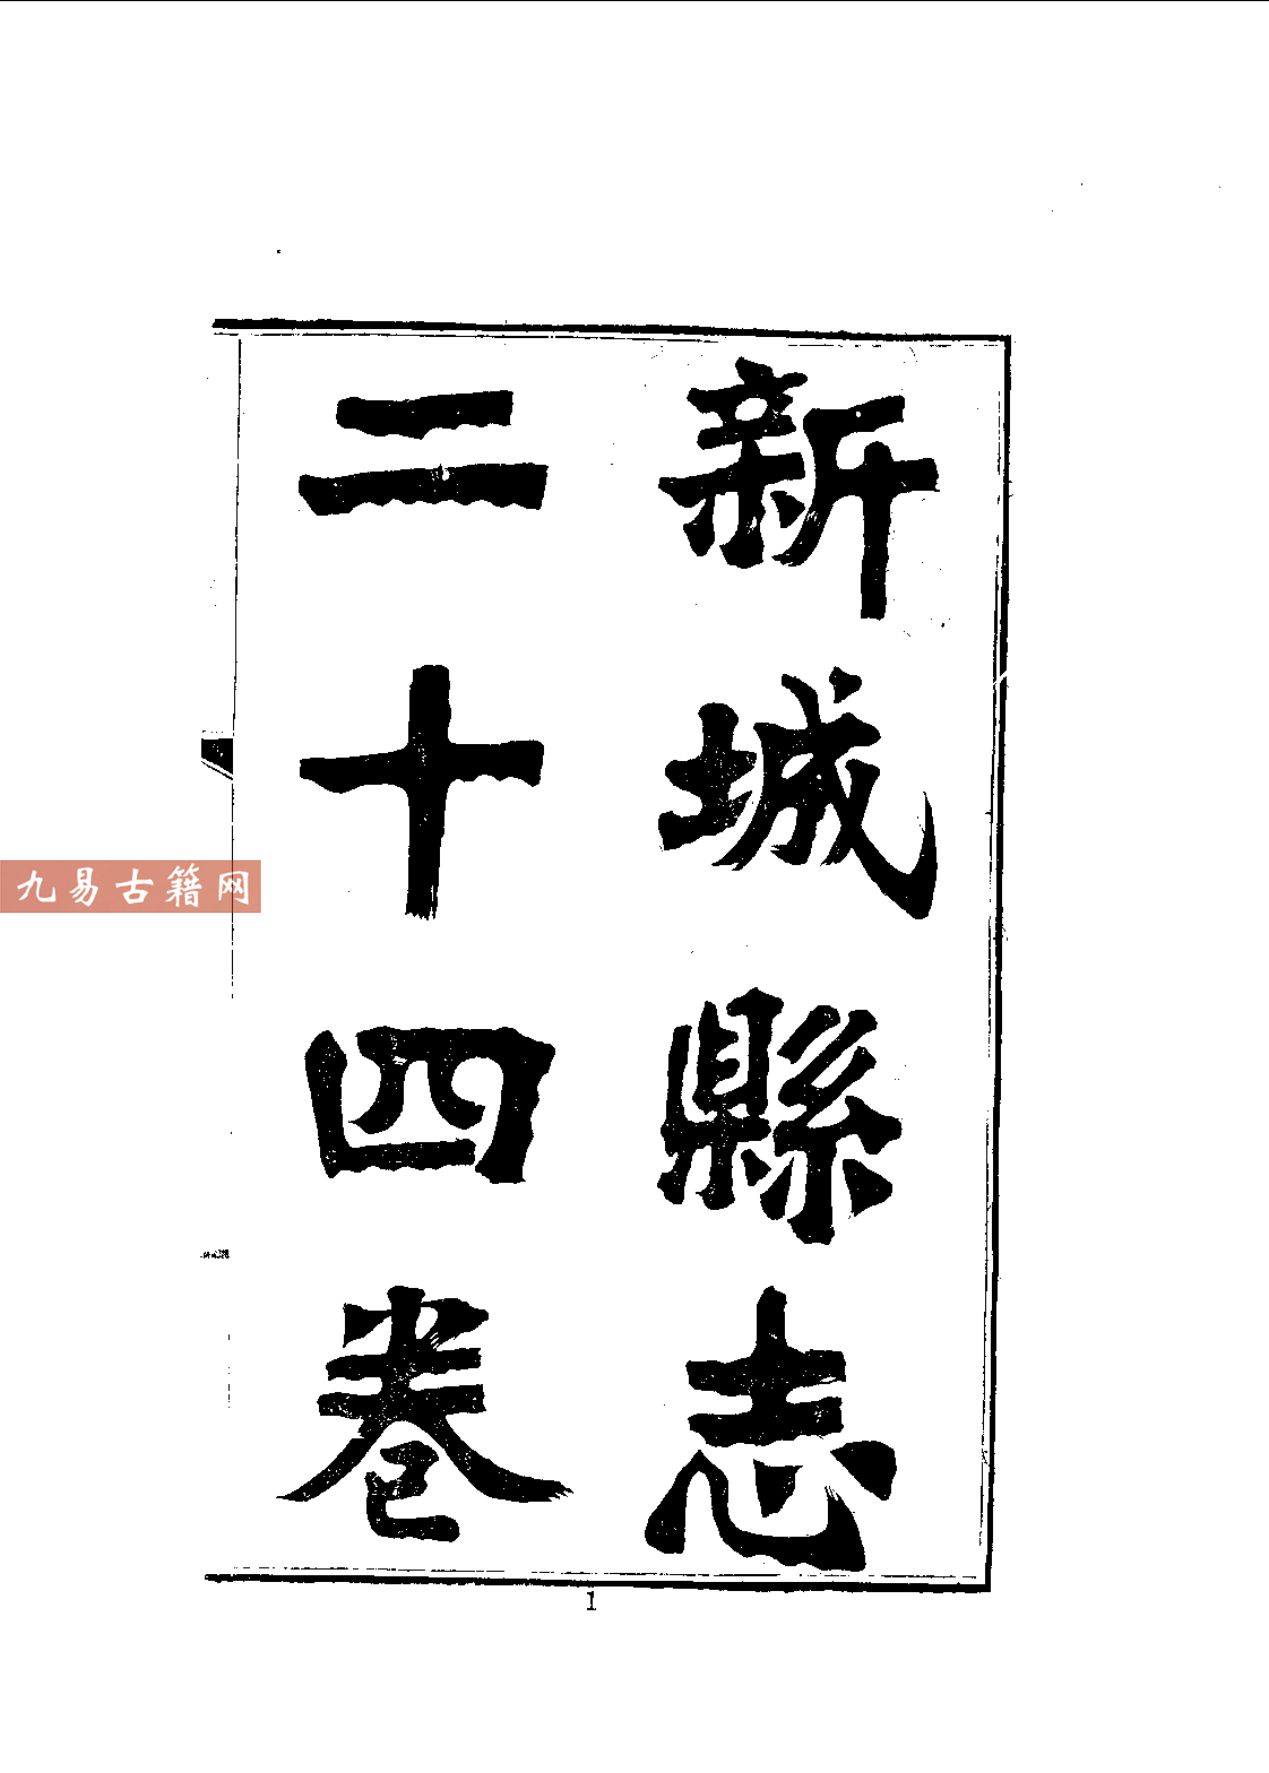 新城縣志
二十四卷
九易古籍网
1